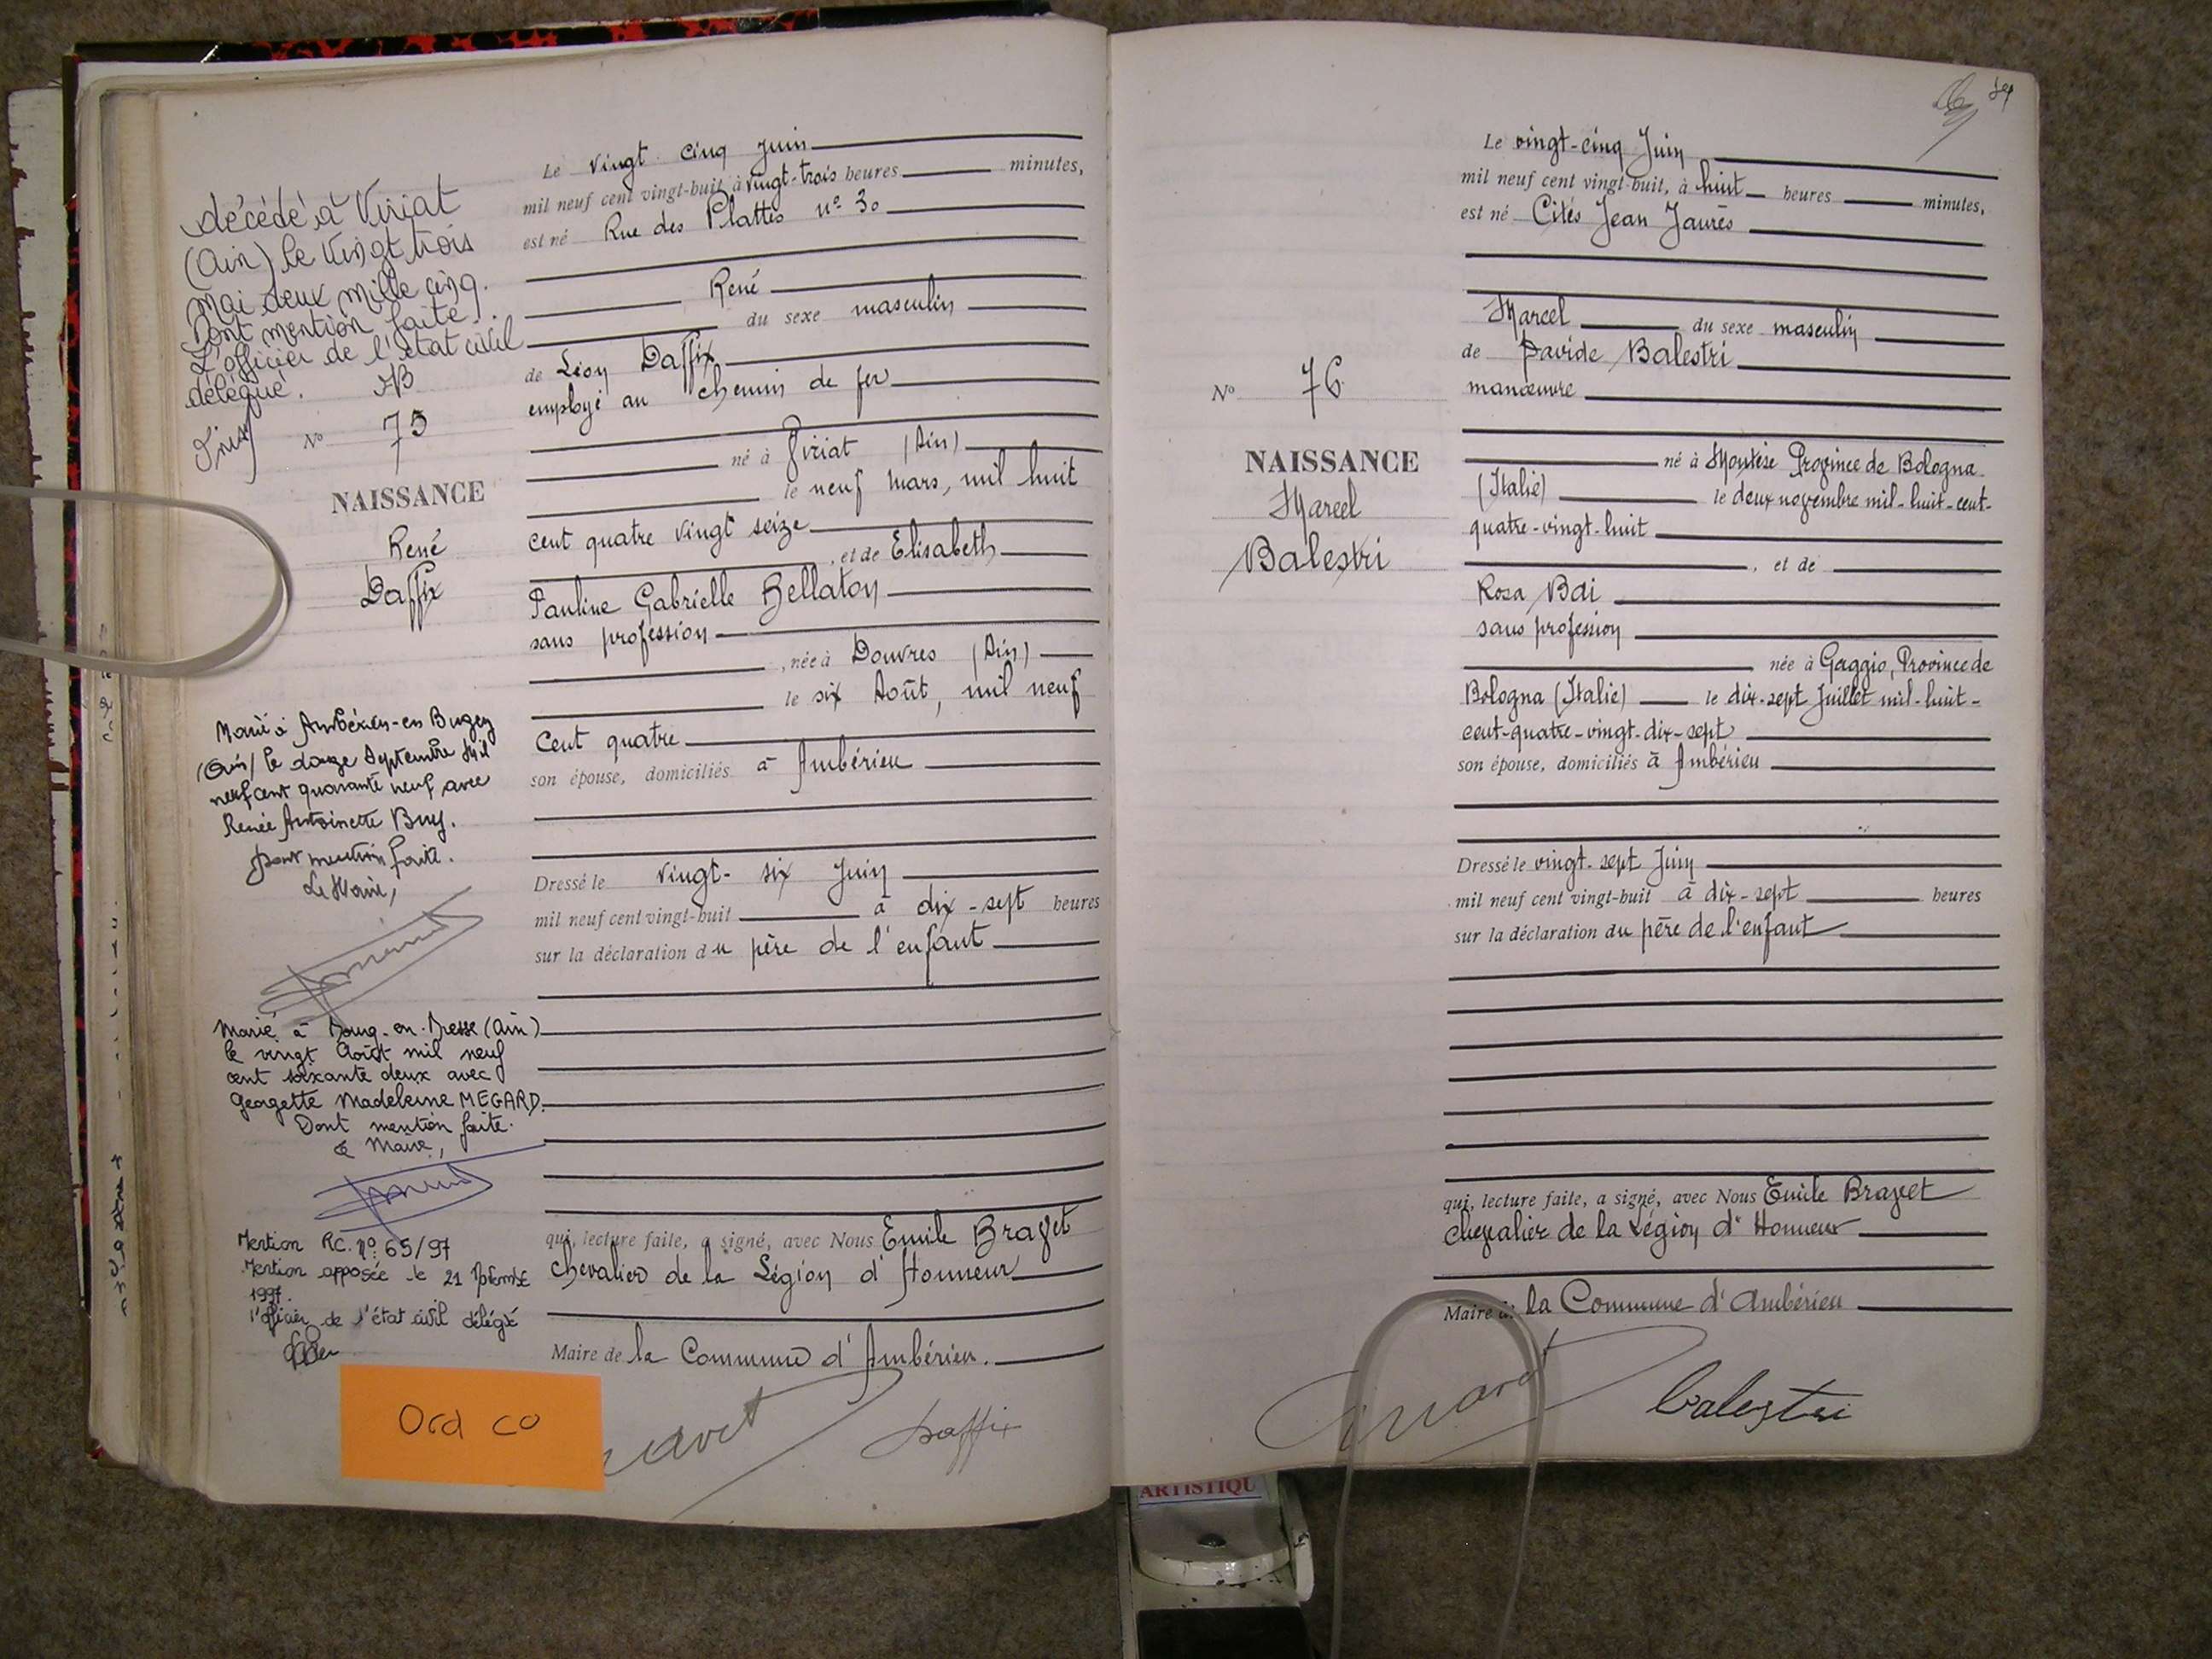 décédé à Viriat
(Ain) le Vingt trois
mai deux mille cinq.
Dont mention faite.
L'officier de l'état civil
délégué.
N° 75
NAISSANCE
René
Daffix
Marié à Ambérieu-en Bugey
(Ain) le douze Septembre Mil
neuf cent quarante neuf avec
Renée Antoinette Buy.
Dont mention faite.
Le Maire,
Marié à Bourg-en-Bresse (Ain)
le vingt Août mil neuf
cent soixante deux avec
Georgette Madeleine MEGARD.
Dont mention faite.
Le Maire,
Mention RC. n° 65/97
Mention apposée le 21 Novembre
1997.
l'officier de l'état civil délégué
Ord co
Le vingt cinq juin
mil neuf cent vingt-huit à vingt-trois heures minutes,
est né Rue des Plattes n° 30
René
du sexe masculin
de Léon Daffix
employé au chemin de fer
né à Viriat (Ain)
le neuf mars, mil huit
cent quatre vingt seize
, et de Elisabeth
Pauline Gabrielle Bellaton
sans profession
, née à Douvres (Ain)
le six Août, mil neuf
cent quatre
son épouse, domiciliés à Ambérieu
Dressé le vingt-six Juin
mil neuf cent vingt-huit à dix-sept heures
sur la déclaration du père de l'enfant
qui, lecture faite, a signé, avec Nous Emile Bravet
chevalier de la Légion d'Honneur
Maire de la Commune d'Ambérieu.
Daffix
N° 76
NAISSANCE
Marcel
Balestri
Le vingt-cinq Juin
mil neuf cent vingt-huit, à huit heures minutes,
est né Cités Jean Jaurès
Marcel du sexe masculin
de Davide Balestri
manœuvre
né à Montèse Province de Bologna
(Italie) le deux novembre mil-huit-cent-
quatre-vingt-huit
, et de
Rosa Bai
sans profession
née à Gaggio, Province de
Bologna (Italie) le dix-sept Juillet mil-huit-
cent-quatre-vingt-dix-sept
son épouse, domiciliés à Ambérieu
Dressé le vingt-sept Juin
mil neuf cent vingt-huit à dix-sept heures
sur la déclaration du père de l'enfant
qui, lecture faite, a signé, avec Nous Emile Bravet
chevalier de la Légion d'Honneur
Maire de la Commune d'Ambérieu
Balestri
ARTISTIQU